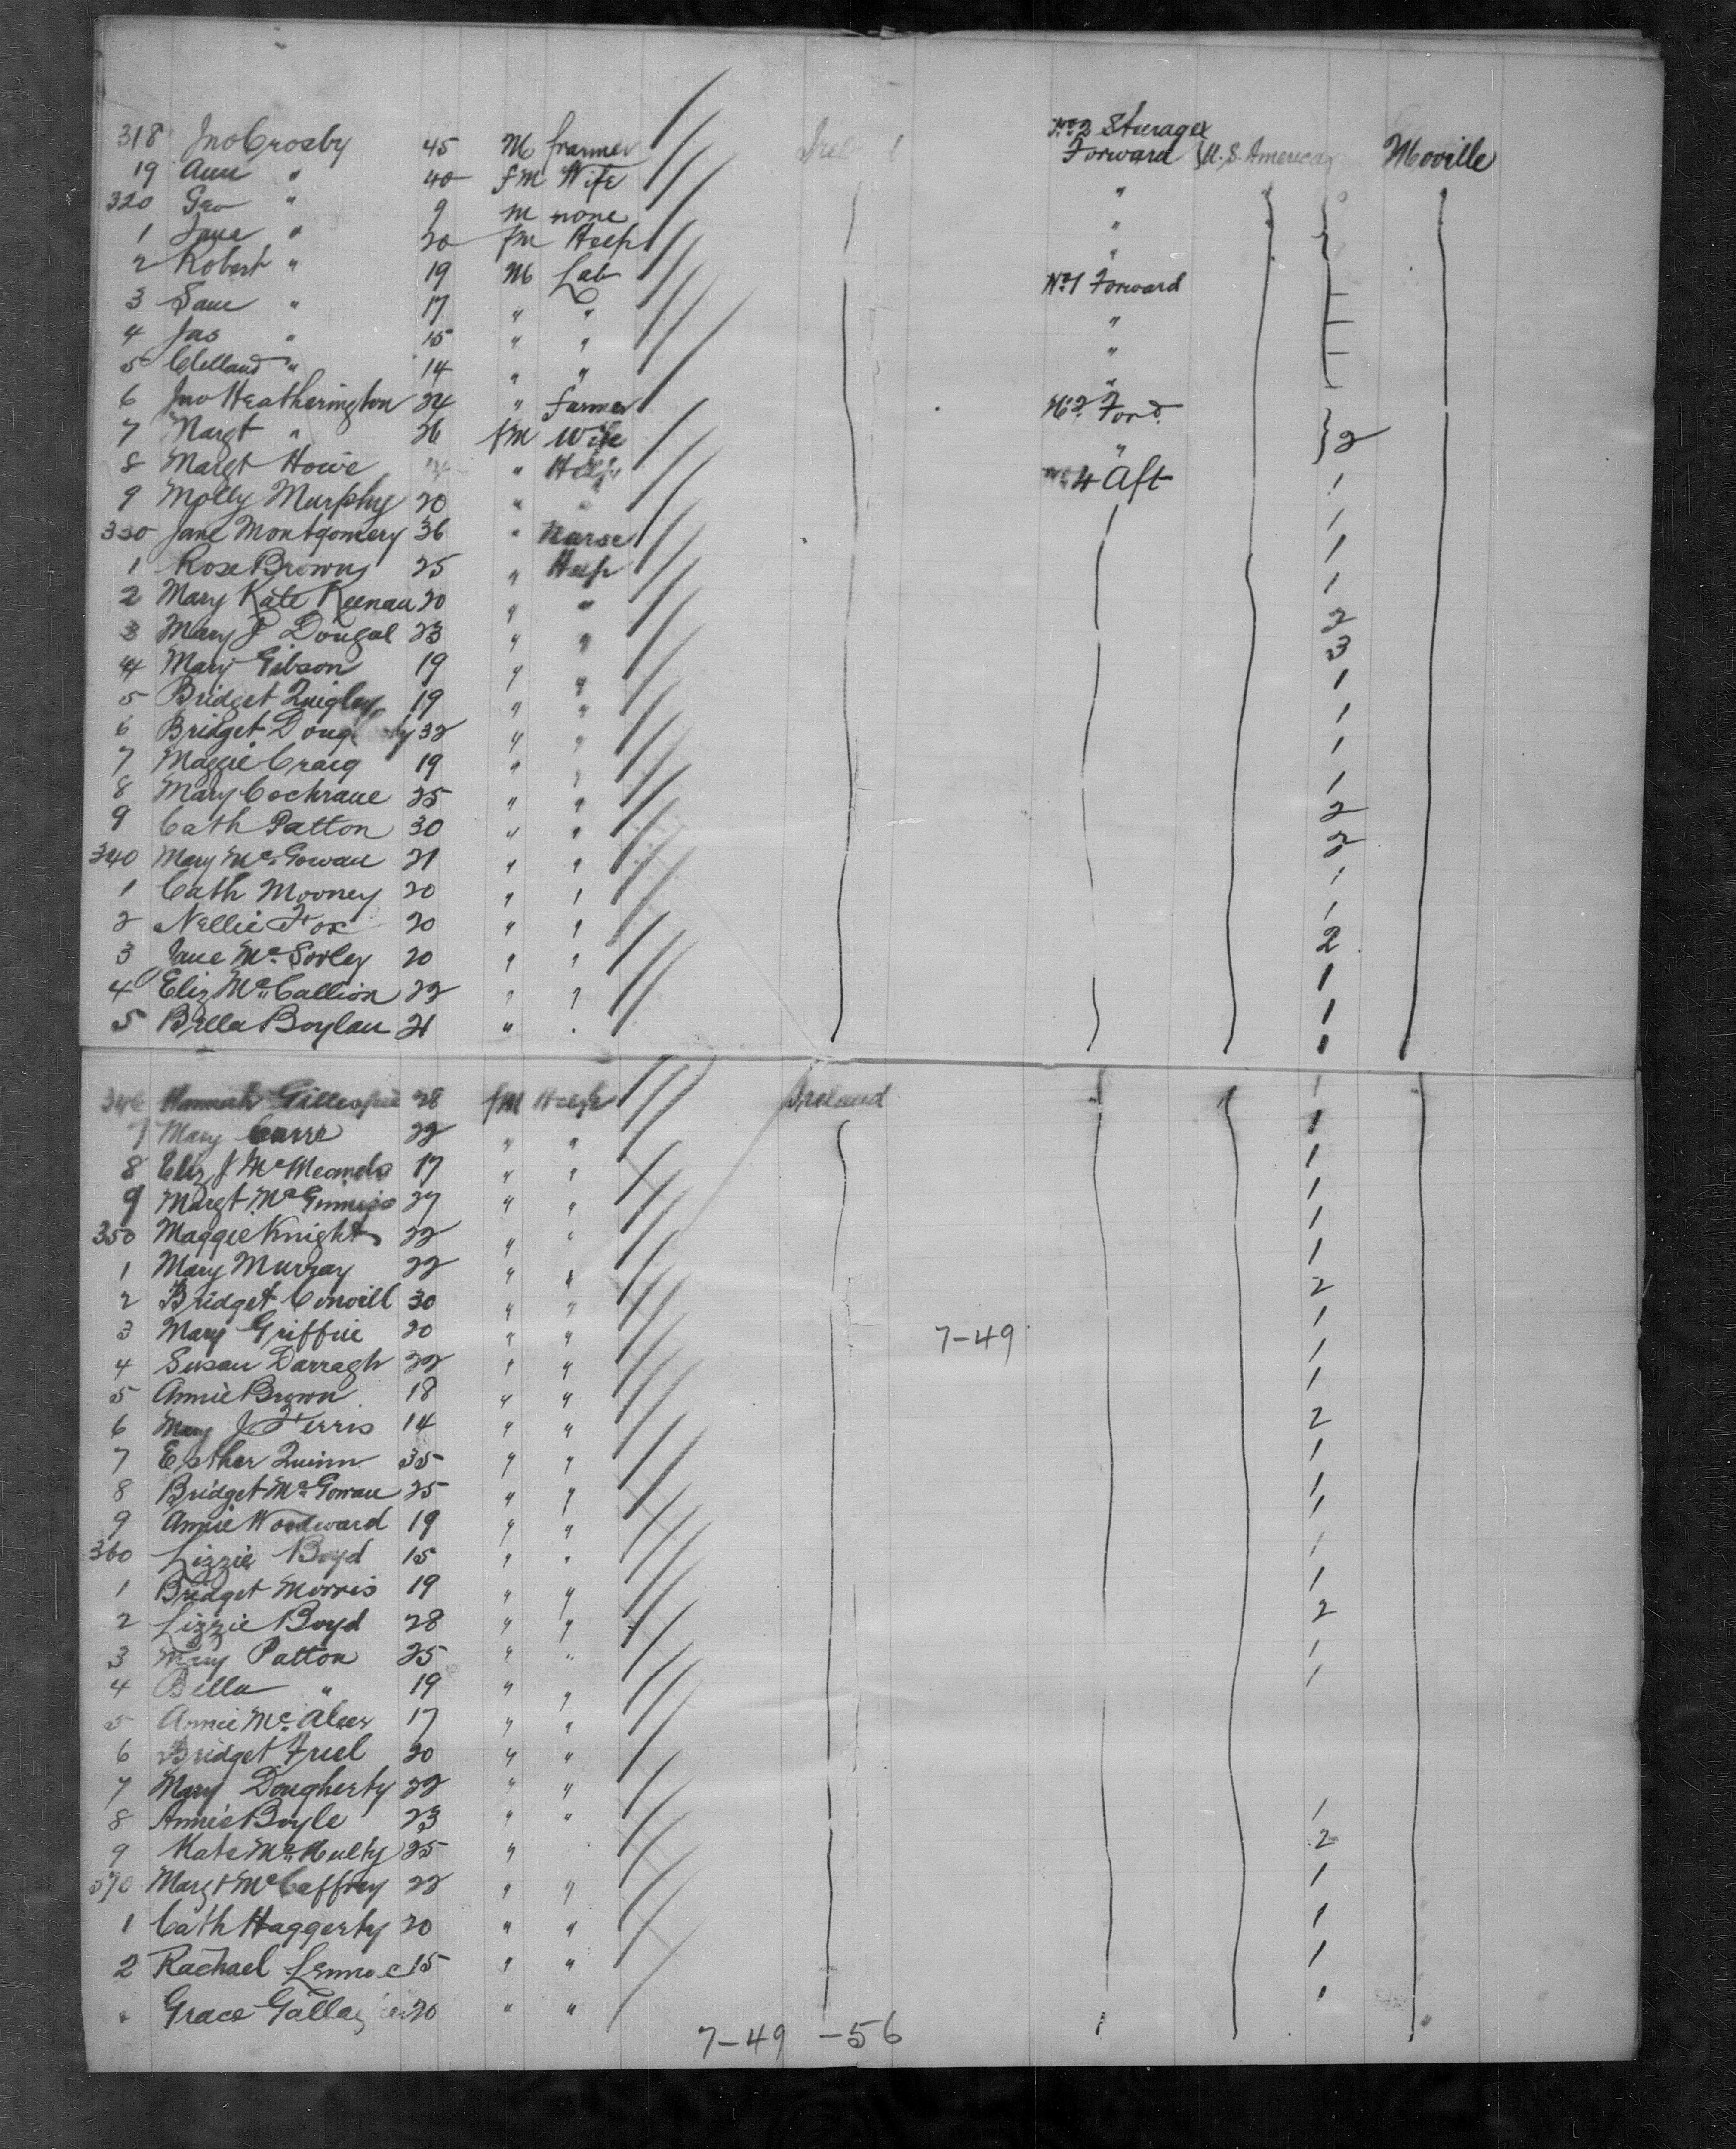 318 Jno Crosby 45 M framer Ireland No 2 Sturage Forward U.S. America Moville
19 Ann " 40 fM Wife "
320 Geo " 9 M none "
1 Jane " 20 fM Help "
2 Robert " 19 M Lab No 1 Forward
3 Sam " 17 " " "
4 Jas " 15 " " "
5 Clelland " 14 " " "
6 Jno Heatherington 24 " farmer No 2 Ford
7 Margt " 26 fM Wife " 2
8 Margt Howe " Help No 4 Aft 1
9 Molly Murphy 20 " " 1
330 Jane Montgomery 36 " Nurse 1
1 Rose Brown 25 " Help 1
2 Mary Kate Keenan 20 " " 2
3 Mary J Dougal 23 " " 3
4 Mary Gibson 19 " " 1
5 Bridget Quigley 19 " " 1
6 Bridget 32 " " 1
7 Maggie Craig 19 " " 1
8 Mary Cochrane 25 " " 2
9 Cath Patton 30 " " 2
340 Mary McGowan 21 " " 1
1 Cath Mooney 20 " " 1
2 Nellie Fox 20 " " 2
3 Jane McSorley 20 " " 1
4 Eliz McCallion 22 " " 1
5 Bella Boylan 21 " " 1
346 Hannah Gillespie 28 fM Help Ireland 1
7 Mary Carre 22 " " 1
8 Eliz J 17 " " 1
9 Margt McGinniss 27 " " 1
350 Maggie Knight 22 " " 1
1 Mary Murray 22 " " 1
2 Bridget Convill 30 " " 2
3 Mary Griffin 20 " " 7-49 1
4 Susan Darragh 22 " " 1
5 Annie Brown 18 " " 1
6 Mary J Ferris 14 " " 2
7 Esther Quinn 35 " " 1
8 Bridget McGowan 25 " " 1
9 Annie Woodward 19 " " 1
360 Lizzie Boyd 15 " " 1
1 Bridget Morris 19 " " 1
2 Lizzie Boyd 28 " " 2
3 Mary Patton 25 " " 1
4 Bella " 19 " " 1
5 Annie McAleer 17 " "
6 Bridget Friel 20 " "
7 Mary Dougherty 22 " "
8 Annie Boyle 23 " " 1
9 Kate McNulty 25 " 2
370 Margt McCaffrey 22 " " 1
1 Cath Haggerty 20 " " 1
2 Rachael 15 " " 1
" Grace 20 " " 1
7-49 -56